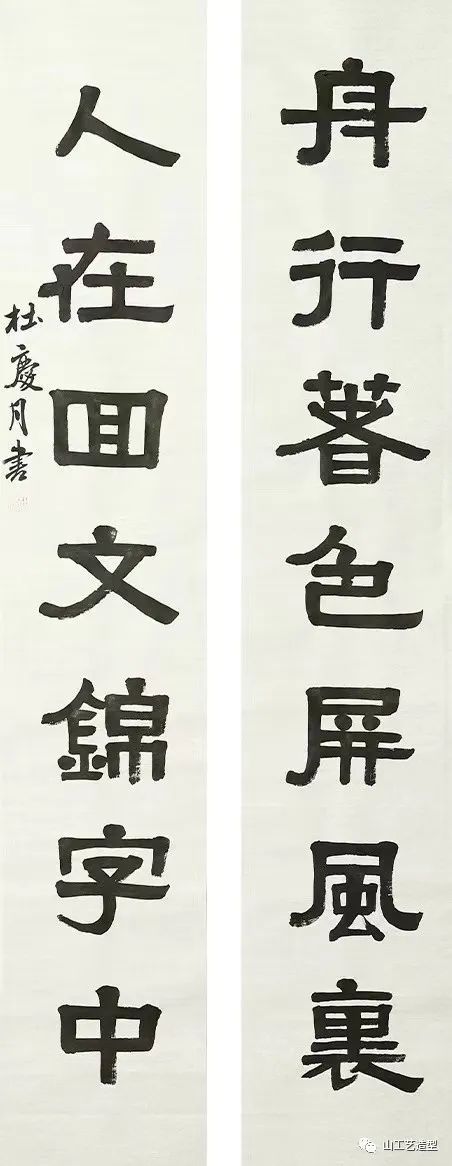 舟行著色屏風裏
人在回文錦字中
杜慶月書
山工艺造型